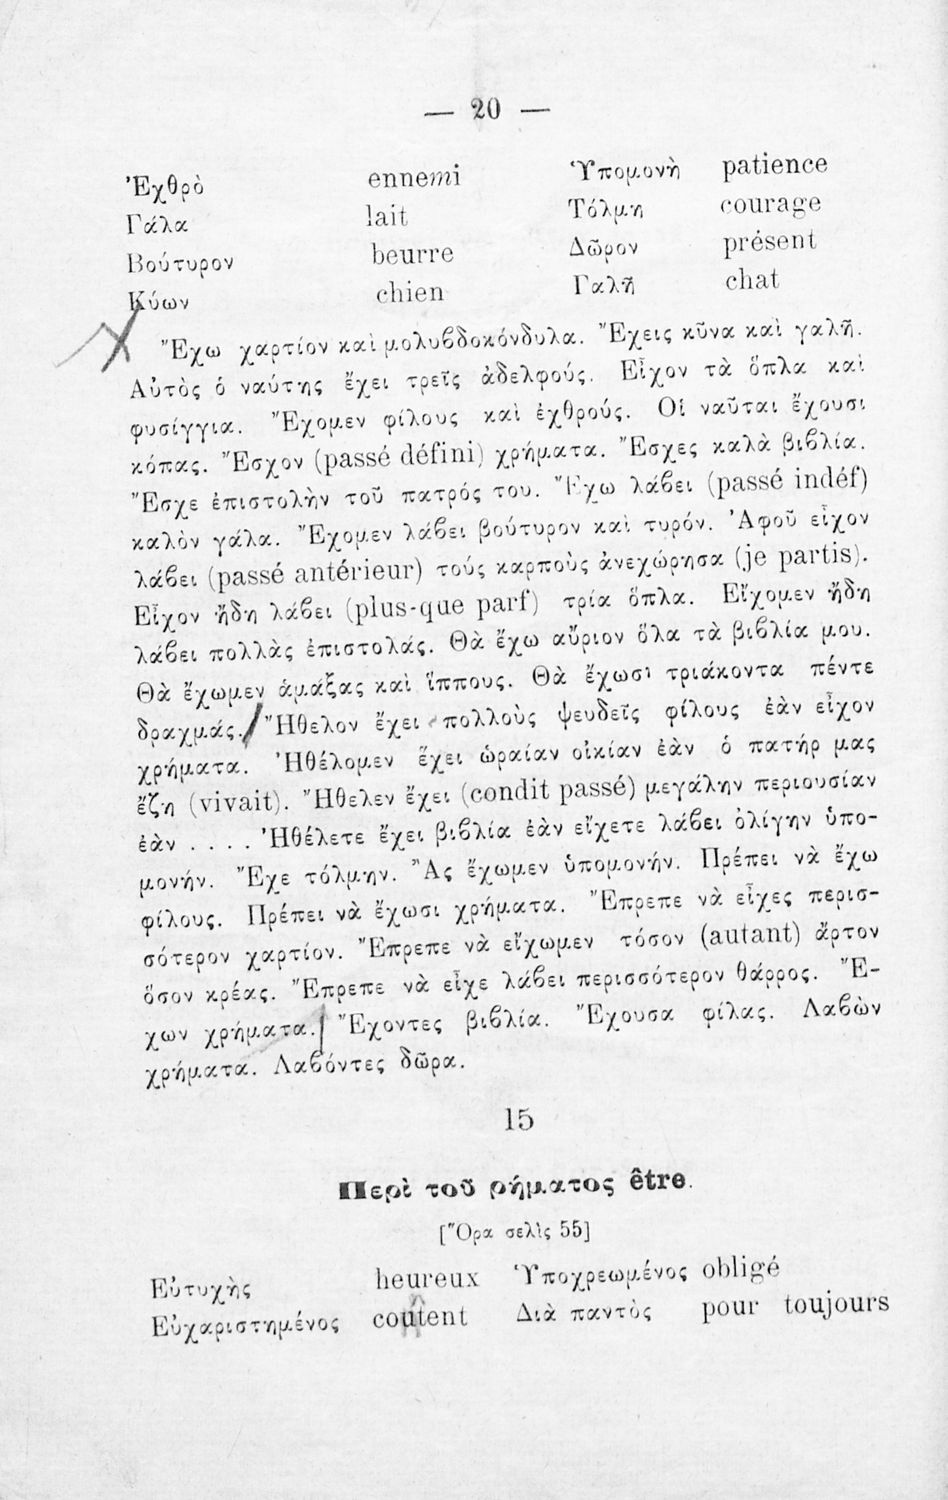 — 20 —
Ἐχθρὸ ennemi Ὑπομονὴ patience
Γάλα lait Τόλμη courage
Βούτυρον beurre Δῶρον présent
Κύων chien Γαλῆ chat
Ἔχω χαρτίον καὶ μολυβδοκόνδυλα. Ἔχεις κῦνα καὶ γαλῆ.
Αὐτὸς ὁ ναύτης ἔχει τρεῖς ἀδελφούς. Εἶχον τὰ ὅπλα καὶ
φυσίγγια. Ἔχομεν φίλους καὶ ἐχθρούς. Οἱ ναῦται ἔχουσι
κόπας. Ἔσχον (passé défini) χρήματα. Ἔσχες καλὰ βιβλία.
Ἔσχε ἐπιστολὴν τοῦ πατρός του. Ἔχω λάβει (passé indéf)
καλὸν γάλα. Ἔχομεν λάβει βούτυρον καὶ τυρόν. Ἀφοῦ εἶχον
λάβει (passé antérieur) τούς καρποὺς ἀνεχώρησα (je partis).
Εἶχον ἤδη λάβει (plus-que parf) τρία ὅπλα. Εἴχομεν ἤδη
λάβει πολλὰς ἐπιστολάς. Θὰ ἔχω αὔριον ὅλα τὰ βιβλία μου.
Θὰ ἔχωμεν ἁμάξας καὶ ἵππους. Θὰ ἔχωσι τριάκοντα πέντε
δραχμάς. Ἤθελον ἔχει πολλοὺς ψευδεῖς φίλους ἐὰν εἶχον
χρήματα. Ἠθέλομεν ἔχει ὡραίαν οἰκίαν ἐὰν ὁ πατήρ μας
ἔζη (vivait). Ἤθελεν ἔχει (condit passé) μεγάλην περιουσίαν
ἐὰν . . . . Ἠθέλετε ἔχει βιβλία ἐὰν εἴχετε λάβει ὀλίγην ὑπο-
μονήν. Ἔχε τόλμην. Ἂς ἔχωμεν ὑπομονήν. Πρέπει νὰ ἔχω
φίλους. Πρέπει νὰ ἔχωσι χρήματα. Ἔπρεπε νὰ εἶχες περισ-
σότερον χαρτίον. Ἔπρεπε νὰ εἴχωμεν τόσον (autant) ἄρτον
ὅσον κρέας. Ἔπρεπε νὰ εἶχε λάβει περισσότερον θάρρος. Ἔ-
χων χρήματα. Ἔχοντες βιβλία. Ἔχουσα φίλας. Λαβὼν
χρήματα. Λαβόντες δῶρα.
15
Περὶ τοῦ ρήματος être.
[Ὅρα σελὶς 55]
Εὐτυχὴς heureux Ὑποχρεωμένος obligé
Εὐχαριστημένος coutent Διὰ παντὸς pour toujours